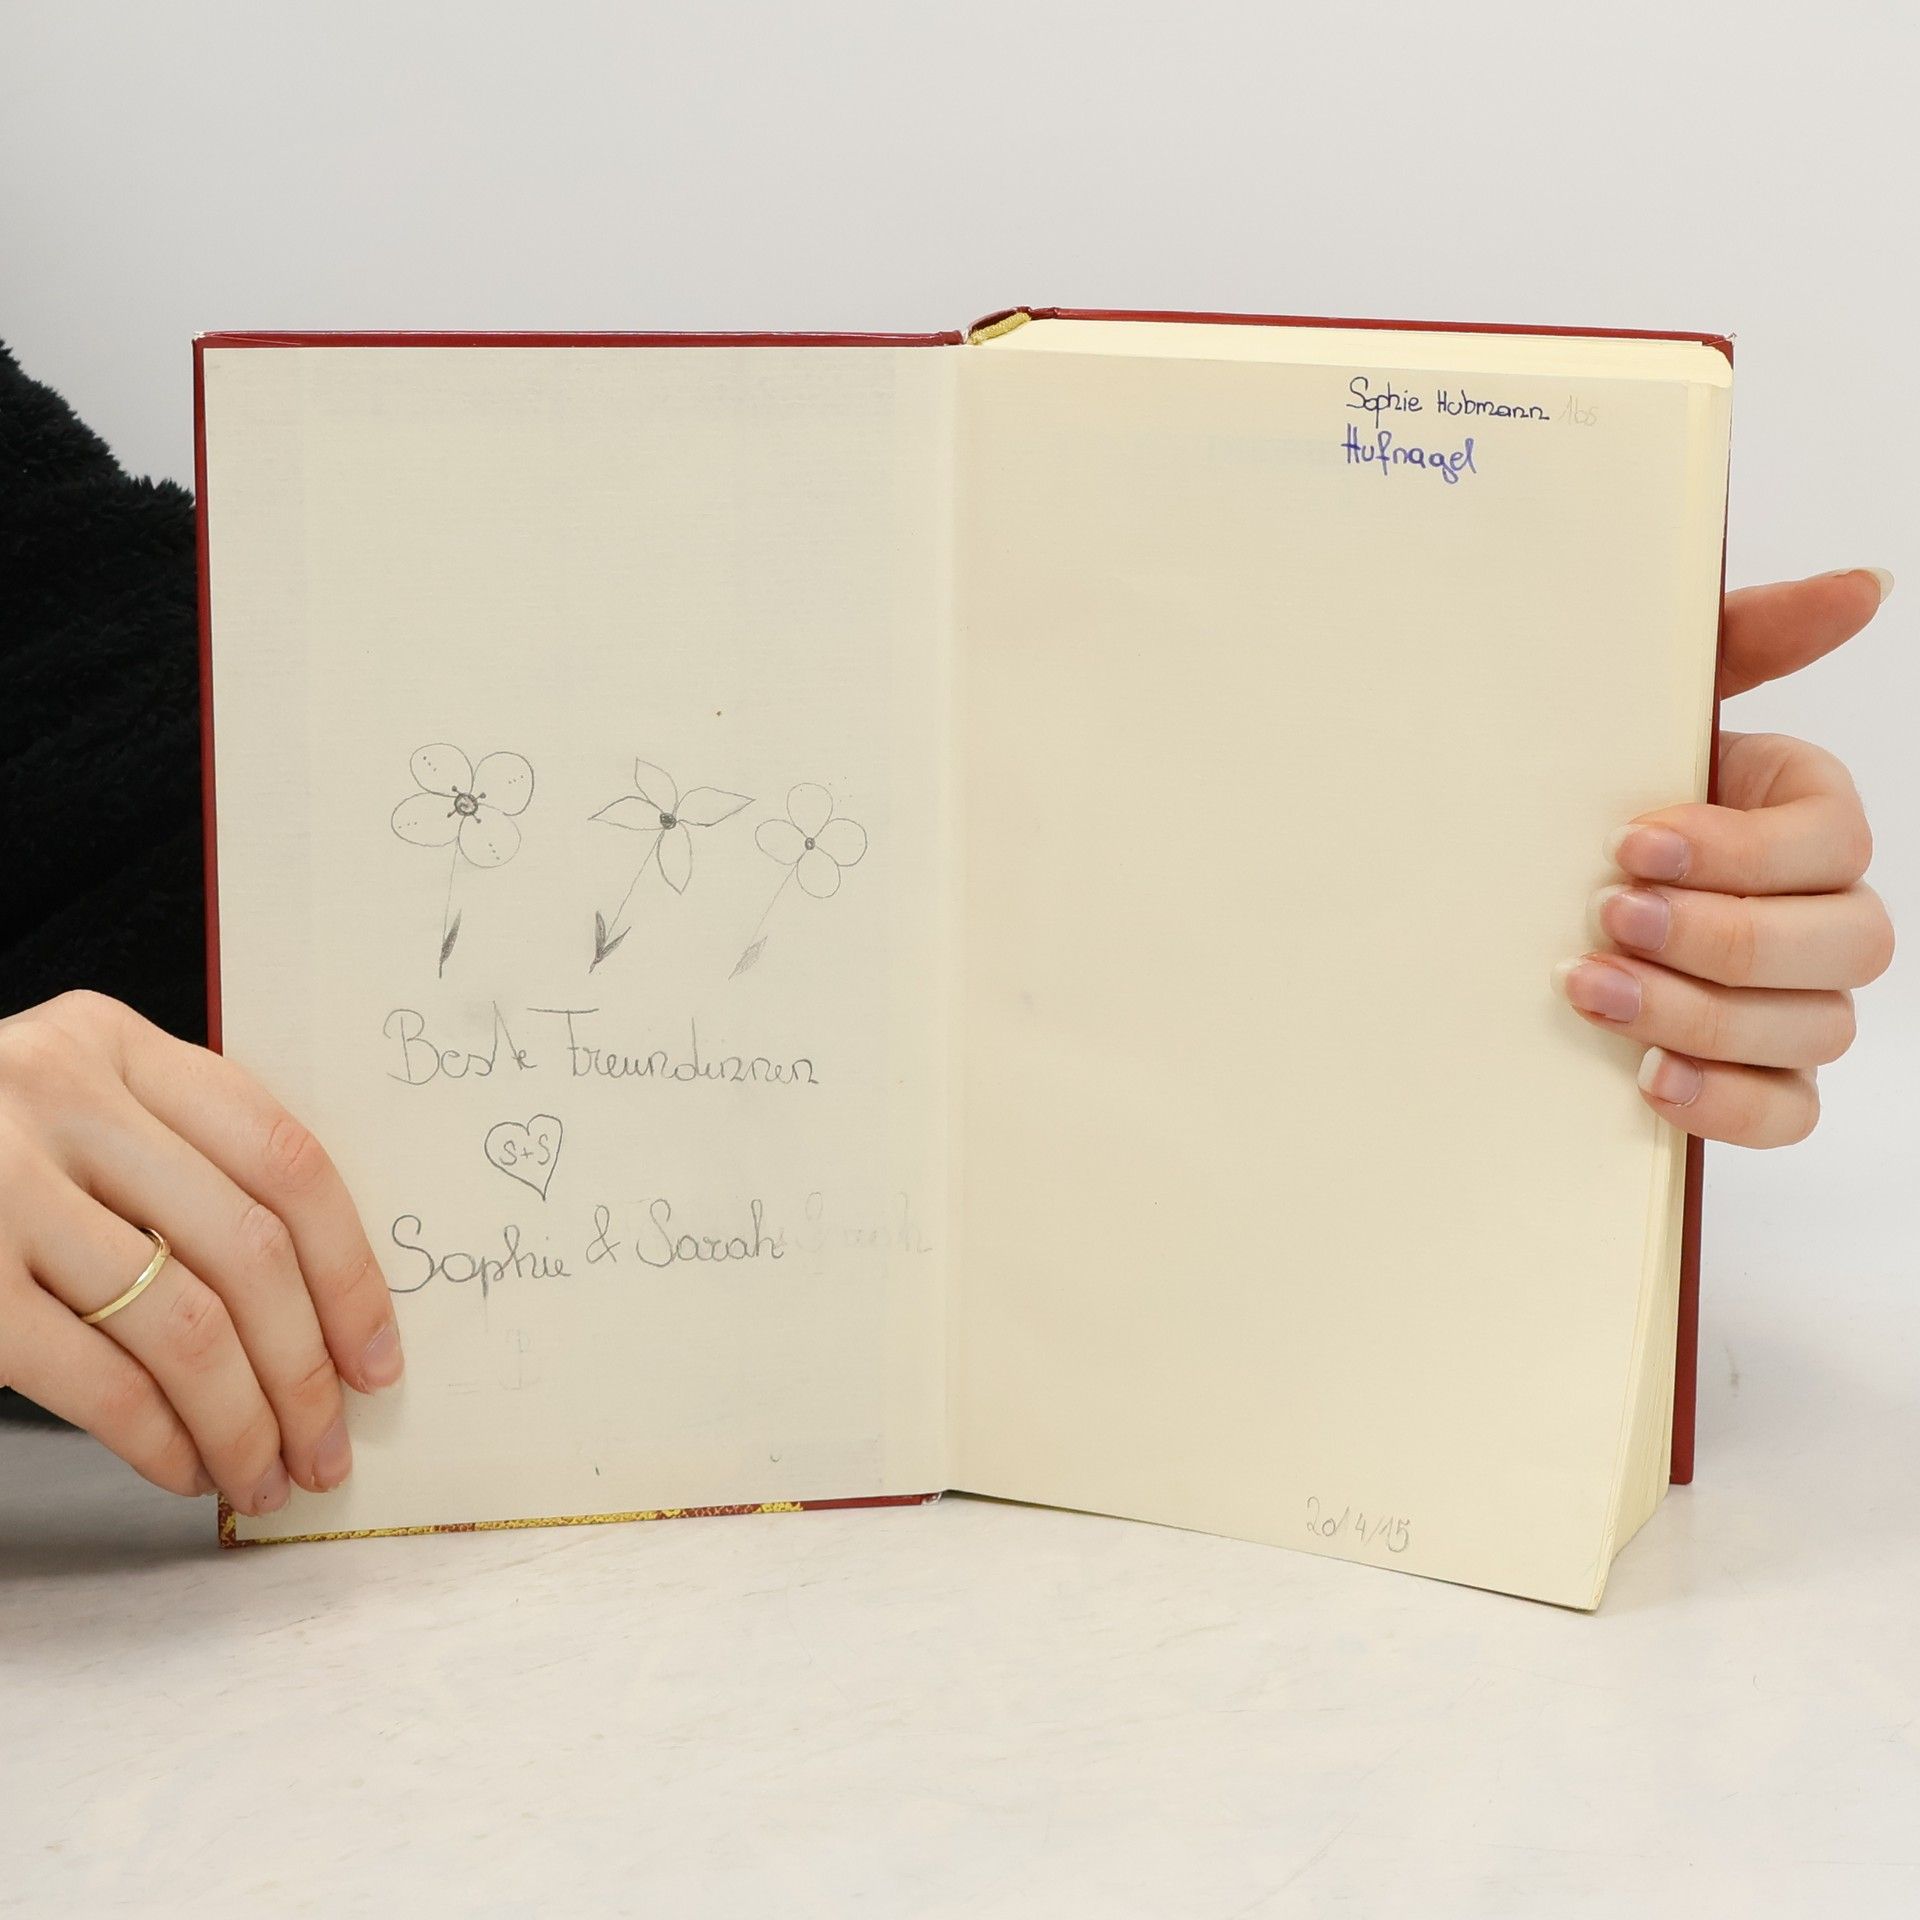 Beste Freundinnen
S+S
Sophie & Sarah
Sophie Hubmann
Hufnagel
2014/15